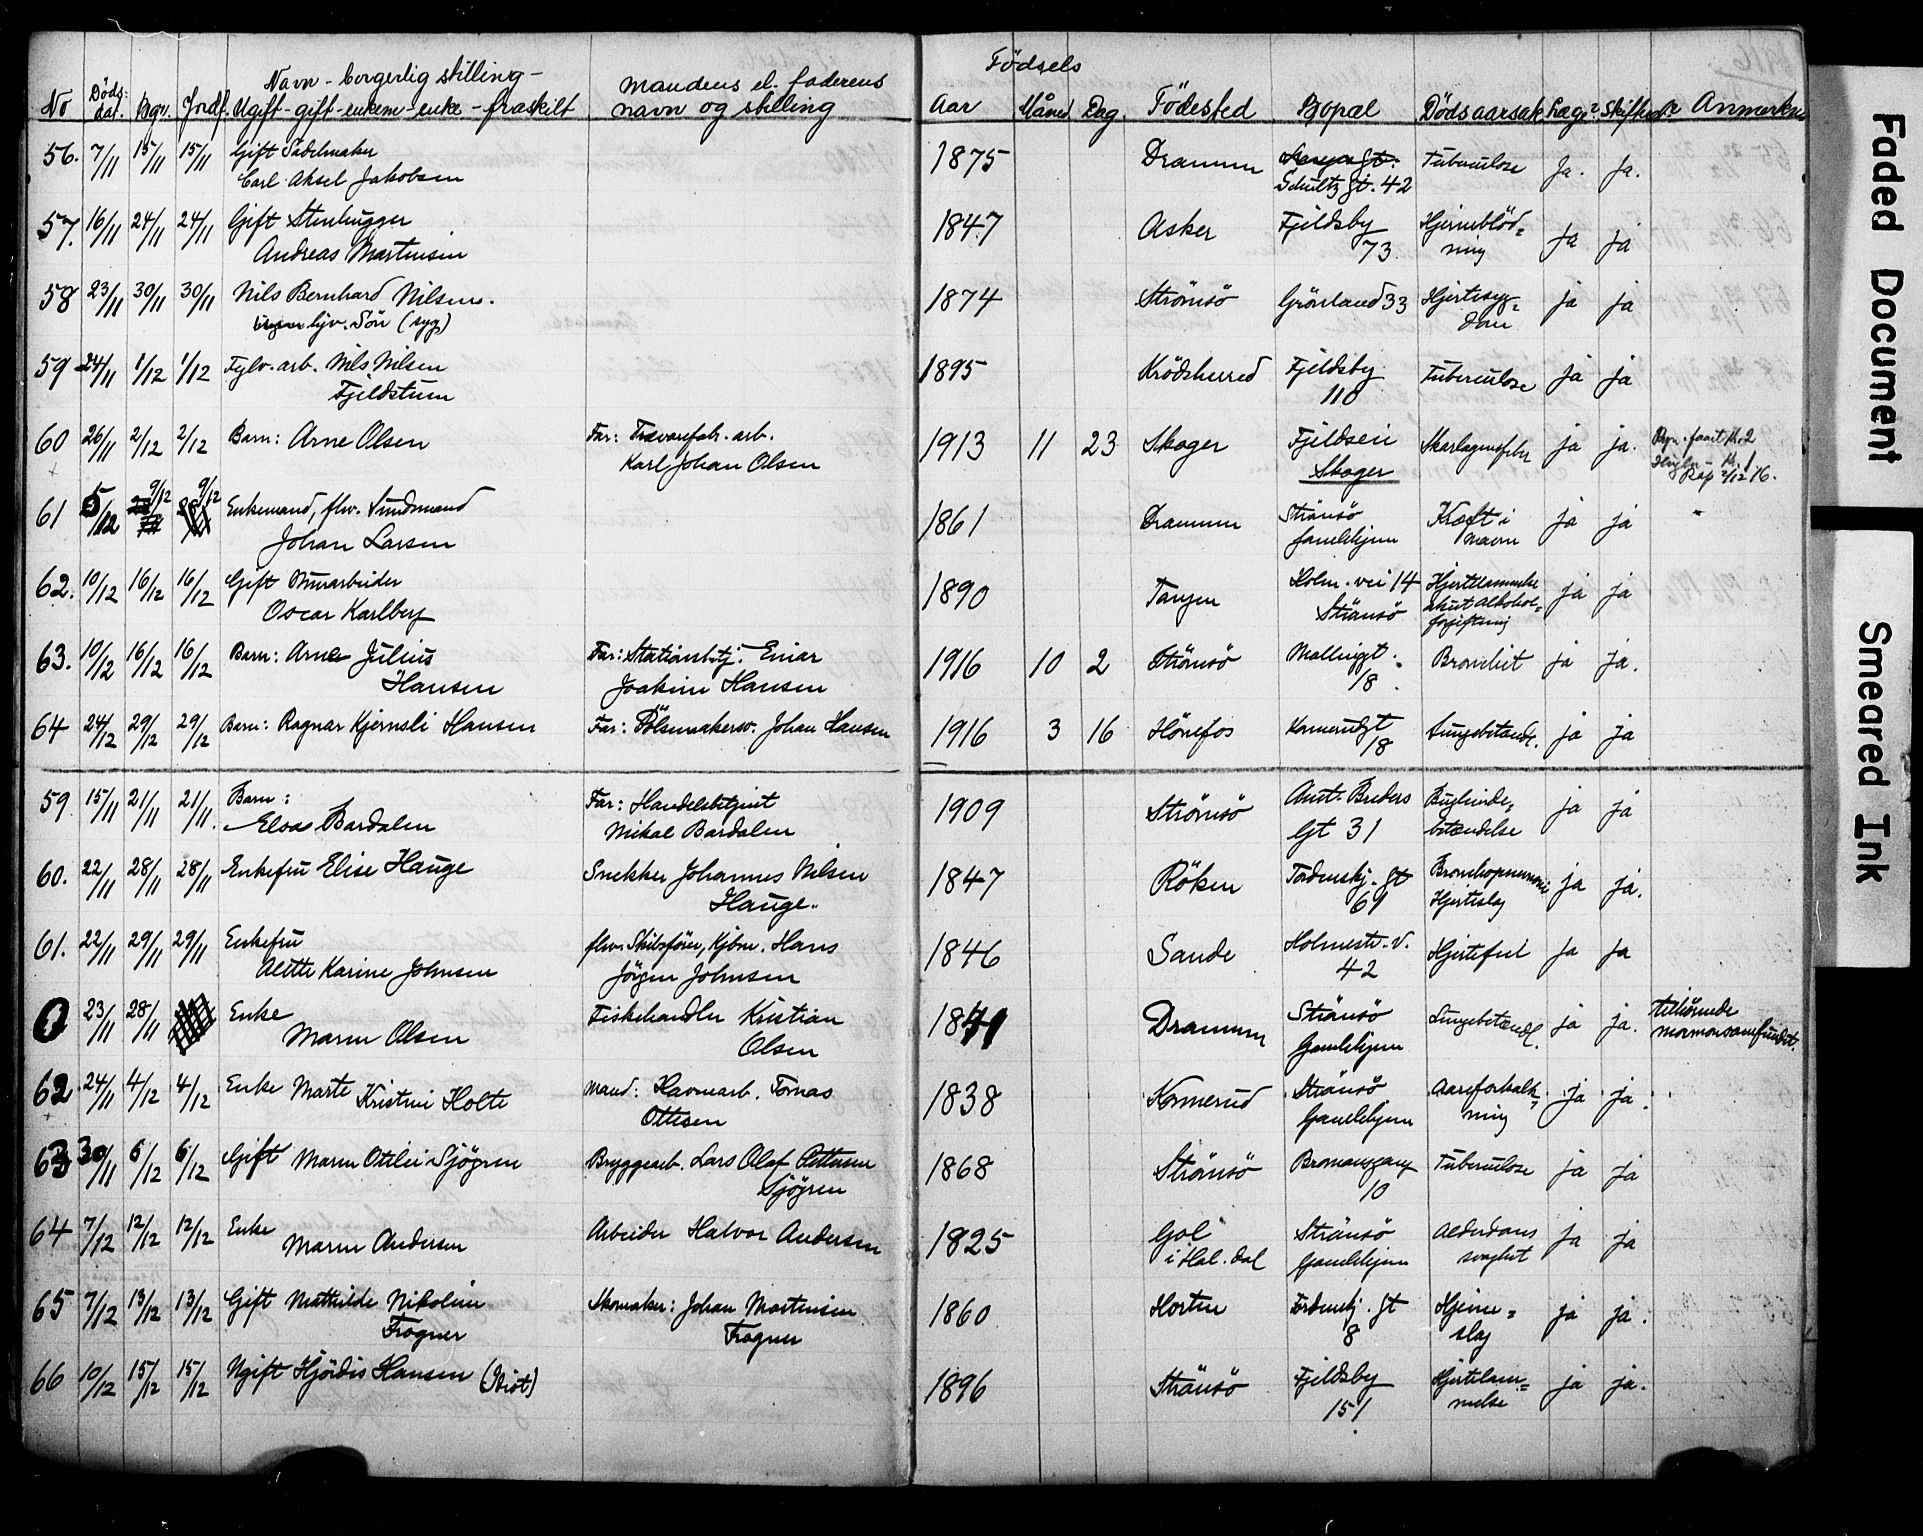 Födsels
No Döds: dat. Bgr. Jordf. Navn - borgerlig stilling - Ugift - gift - enkem - enke - fraskilt Mandens el. faderens navn og stilling Aar Måned Dag. Födested Bopæl Dödsaarsak Læge? Skifteret? Anmerkn
56. 7/11 15/11 15/11 Gift Sadelmaker 1875 Drammen Tuberculose Ja. ja.
Carl Aksel Jakobsen Schultz gt. 42
57. 16/11 24/11 24/11 Gift Stenhugger 1847 Asker Fjeldsby Hjerneblöd= ja ja
Andreas Martinsen 73. ning
58 23/11 30/11 30/11 Nils Bernhard Nilsen. 1874 Strömsö Grönland 33 Hjertesyg= ja ja
Sön (syg) dom
59 24/11 1/12 1/12 Fylv. arb. Nils Nilsen 1895 Krödsherred Fjeldsby Tuberculose ja ja
Fjeldstuen 110
60 26/11 2/12 2/12 Barn: Arne Olsen Far: Trævarefabr. arb. 1913 11 23 Skoger Fjeldseie Skarlagensfeber ja ja. Bgr. faart kl. 2
Karl Johan Olsen Skoger kl. 1
2/12 16.
61 5/12 9/12 9/12 Enkemand, flv. Sundmand 1861 Drammen Strömsö Kræft i ja ja
Johan Larsen Gamlehjem maven
62. 10/12 16/12 16/12 Gift Murarbeider 1890 Tangen Holm. vei 14 Hjertelammelse ja ja
Oscar Karlberg Strömsö akut alkohol=
forgiftning
63. 10/12 16/12 16/12 Barn: Arne Julius Far: Stationsbtj. Einar 1916 10 2 Strömsö Mallinggt. Bronchit ja ja.
Hansen Joakim Hansen 18.
64 24/12 29/12 29/12 Barn: Ragnar Kjernsli Hansen Far: Pölsemakersv. Johan Hansen 1916 3 16 Hönefos Konnerudgt Lungebetændl. ja ja
18
59. 15/11 21/11 21/11. Barn: Far: Handelsbetjent 1909 Strömsö Amt. Breders Bughinde= ja ja
Elsa Bardalen Mikal Bardalen Gt 31 betændelse
60. 22/11 28/11 28/11 Enkefru Elise Hauge Snekker Johannes Nilsen 1847 Röken Tordenskj. gt Bronchopneumoni ja ja.
Hauge. 61 Hjerteslag
61. 22/11 29/11 29/11 Enkefru flv. Skibsförer, Kjbm. Hans 1846 Sande Holmestr. v. Hjertefeil ja ja
Alette Karine Johnsen Jörgen Johnsen 42
0 23/11 28/11 Enke Fiskehandler Kristian 1841 Drammen Strömsö Lungebetændl. ja ja. tilhörende
Maren Olsen Olsen Gamlehjem mormonsamfundet.
62 24/11 4/12 4/12 Enke Marte Kristine Holte Mand: Havnearb. Tomas 1838 Konnerud Strömsö Aareforkalk= ja ja.
Ottesen Gamlehjem ning
63 30/11 6/12 6/12 Gift Maren Ottilie Sjögren Bryggearb. Lars Olaf Pettersen 1868 Strömsö Bromansgang Tuberculose ja ja
Sjögren 10
64 7/12 12/12 12/12 Enke Arbeider Halvor Andersen 1825 Gol Strömsö Alderdoms ja ja
Maren Andersen i Hal. dal Gamlehjem svaghet
65 7/12 13/12 13/12 Gift Mathilde Nikoline Skomaker: Johan Martinsen 1860 Horten Tordenskj. gt Hjerne= ja ja.
Frogner Frogner 8 slag
66 10/12 15/12 15/12 Ugift Hjördis Hansen (Idiot) 1896 Strömsö Fjeldsby Hjertelam= ja ja.
151 melse
Faded Document
Smeared Ink